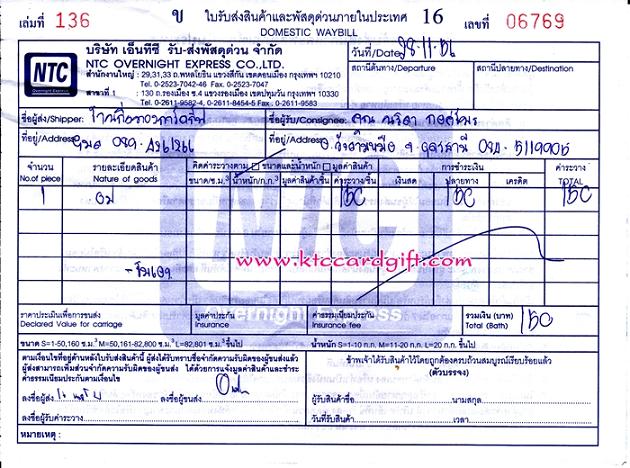 เล่มที่ 136 ข ใบรับส่งสินค้าและพัสดุด่วนภายในประเทศ 16 เลขที่ 06769
DOMESTIC WAYBILL
NTC
Overnight Express
บริษัท เอ็นทีซี รับ-ส่งพัสดุด่วน จำกัด
NTC OVERNIGHT EXPRESS CO.,LTD.
สำนักงานใหญ่ : 29,31,33 ถ.พหลโยธิน แขวงสีกัน เขตดอนเมือง กรุงเทพฯ 10210
Tel. 0-2523-7042-46 Fax. 0-2523-7047
สาขาที่ 1 : 130 ถ.รองเมือง ต.4 แขวงรองเมือง เขตปทุมวัน กรุงเทพฯ 10330
Tel. 0-2611-9582-4, 0-2611-8454-5 Fax : 0-2611-9583
วันที่/Date 28-11-56
สถานีต้นทาง/Departure สถานีปลายทาง/Destination
ชื่อผู้ส่ง/Shipper: ชื่อผู้รับ/Consignee: คุณ
ที่อยู่/Address ที่อยู่/Address: 5119905
จำนวน รายละเอียดสินค้า คิดค่าระวางตาม ขนาดและน้ำหนัก มูลค่าสินค้า การชำระเงิน ค่าระวาง
No.of piece Nature of goods ขนาด/ซ.ม.³ น้ำหนัก/ก.ก. มูลค่าสินค้าชิ้น ค่าระวาง/ชิ้น เงินสด ปลายทาง เครดิต TOTAL
1 150 150 150
NTC
www.ktccardgift.com
Overnight Express
ราคาประเมินเพื่อการขนส่ง มูลค่าประกัน ค่าธรรมเนียมประกัน รวมเงิน (บาท) 150
Declared Value for carriage Insurance Insurance fee Total (Bath)
ขนาด S=1-50,160 ซ.ม.³ M=50,161-82,800 ซ.ม.³ L=82,801 ซ.ม.³ ขึ้นไป น้ำหนัก S=1-10 ก.ก. M=11-20 ก.ก. L=20 ก.ก. ขึ้นไป
ตามเงื่อนไขที่อยู่ด้านหลังใบรับส่งสินค้านี้ ผู้ส่งได้รับทราบข้อจำกัดความรับผิดของผู้ขนส่งแล้ว
ผู้ส่งสามารถเพิ่มส่วนจำกัดความรับผิดของผู้ขนส่ง ได้ด้วยการแจ้งมูลค่าสินค้าและชำระ
ค่าธรรมเนียมประกันตามเงื่อนไข
ข้าพเจ้าได้รับสินค้าไว้โดยถูกต้องครบถ้วนสมบูรณ์เรียบร้อยแล้ว
(ตัวบรรจง)
ลงชื่อผู้ส่ง ลงชื่อผู้ขนส่ง ผู้รับสินค้าชื่อ นามสกุล
ลงชื่อผู้รับค่าระวาง วันที่รับสินค้า เวลา
หมายเหตุ :